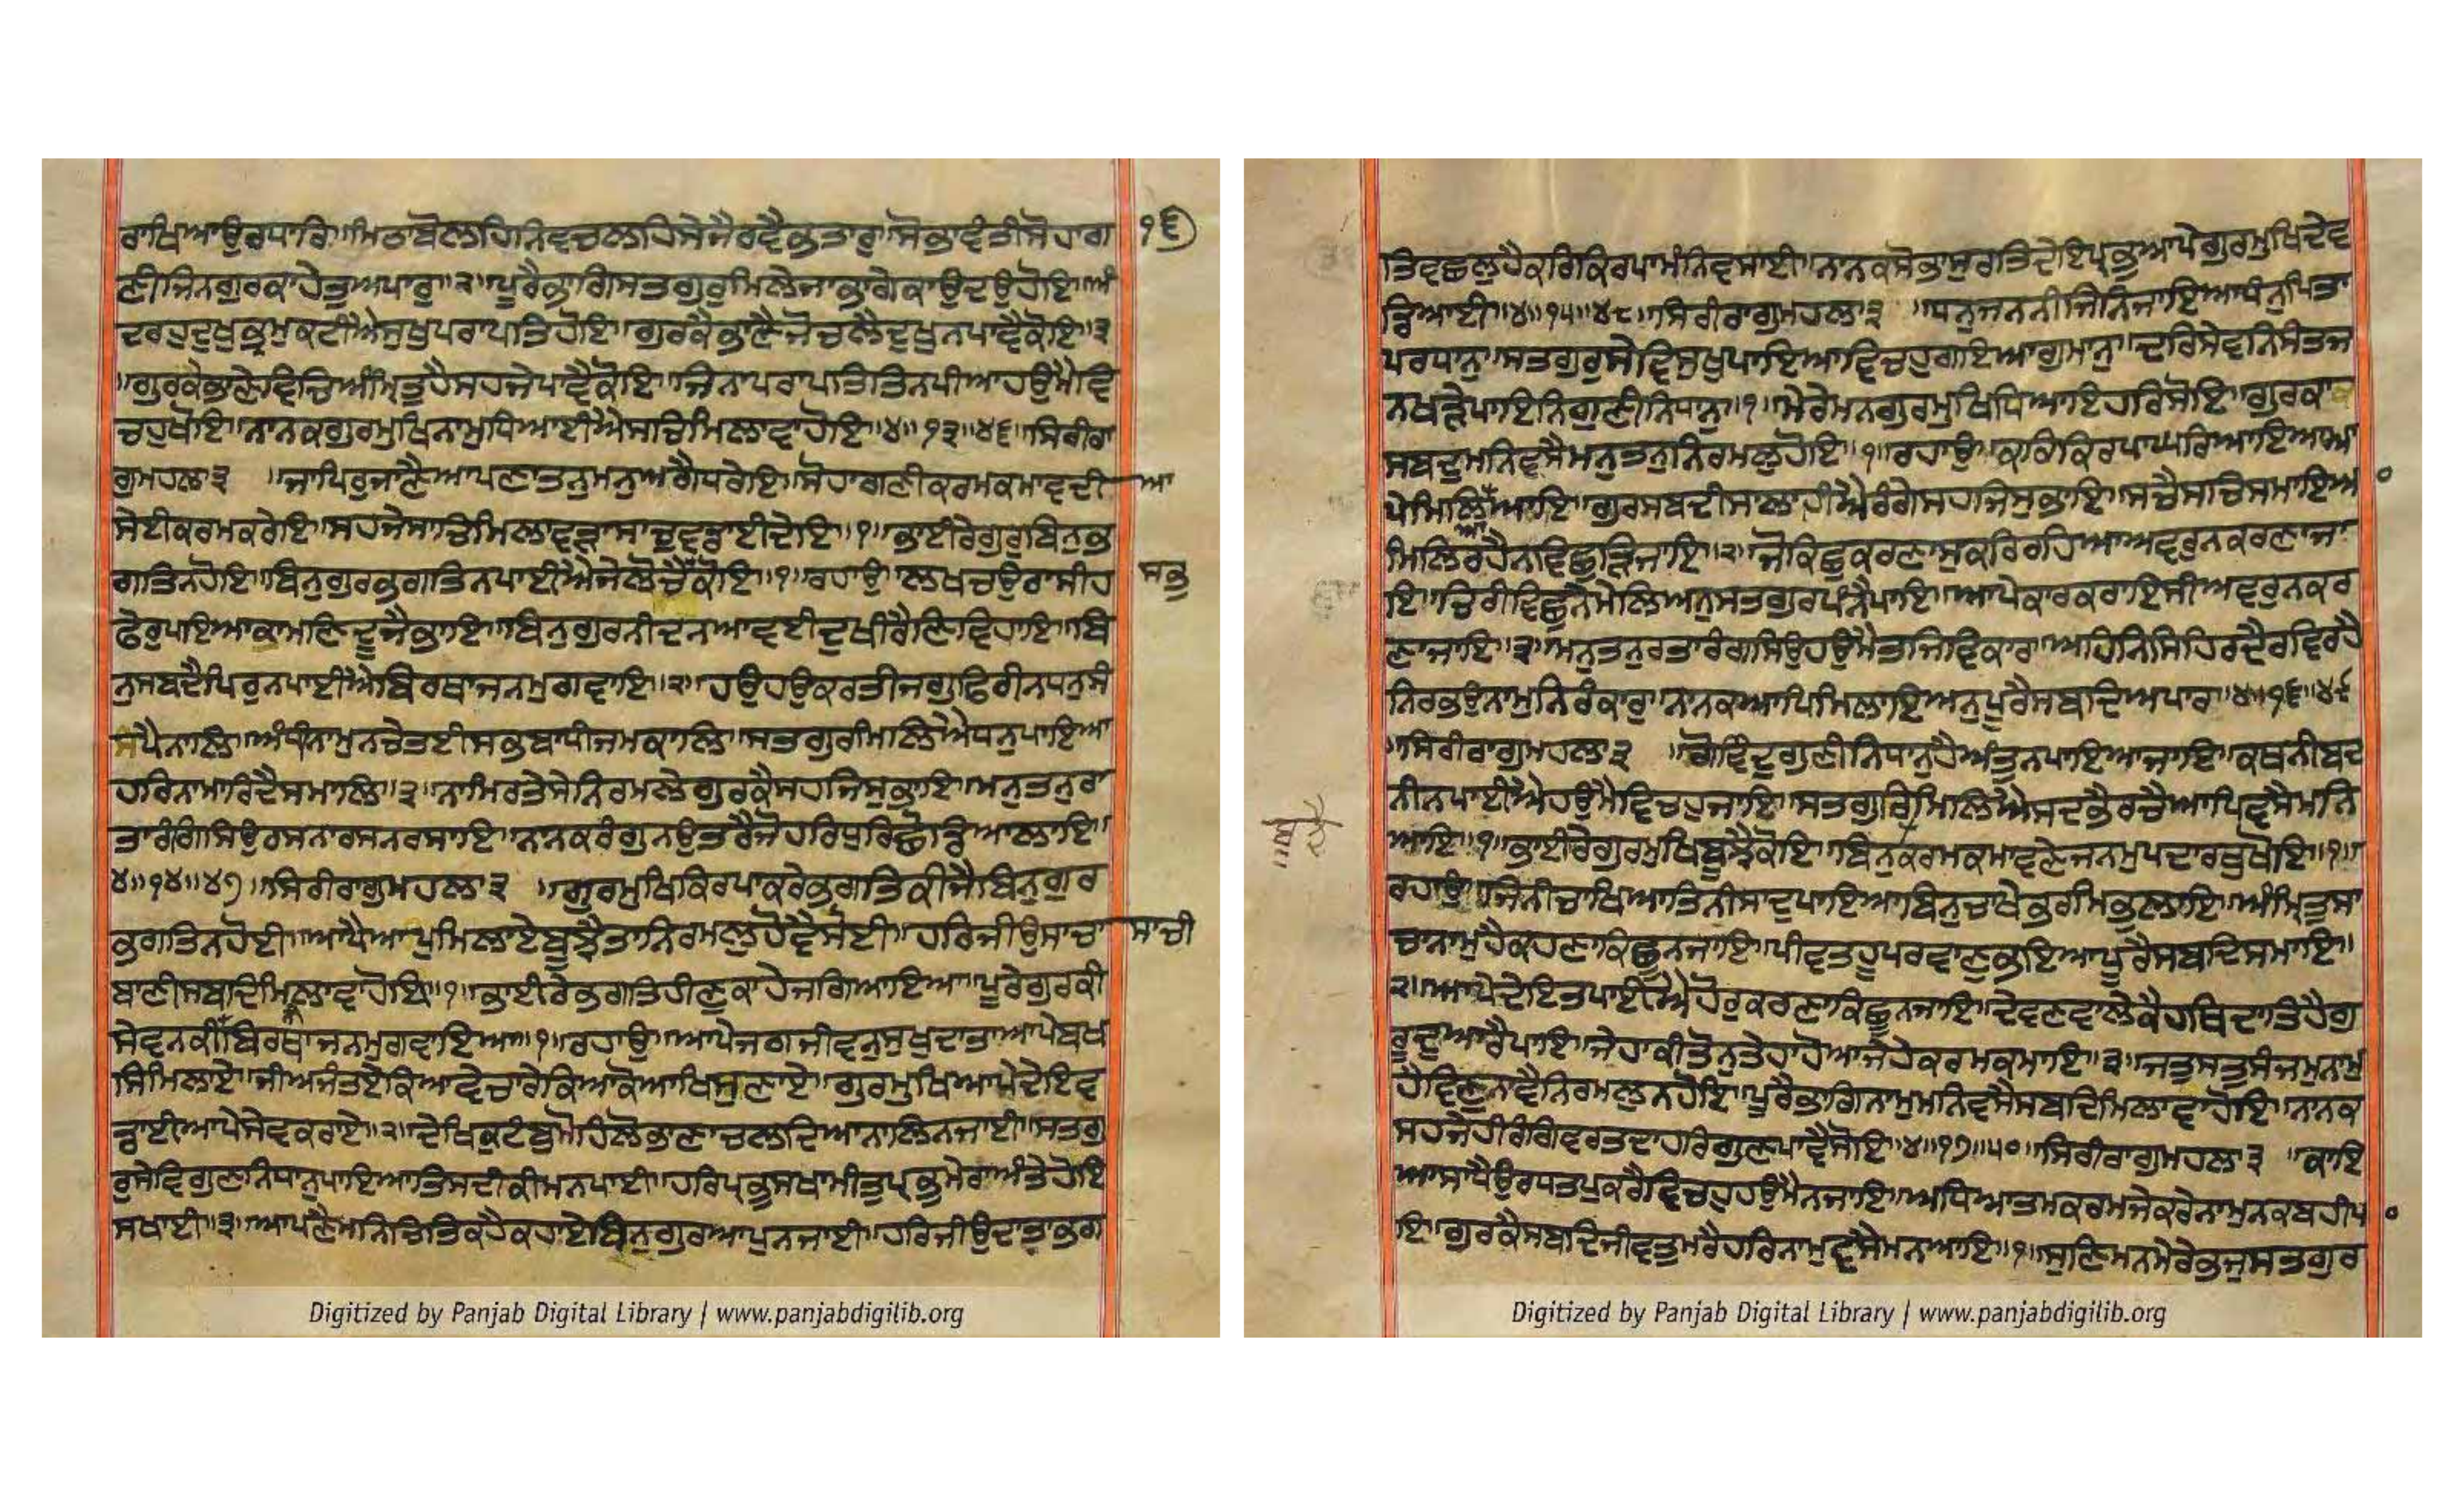 ਰਾਖਿਆਉਰਧਾਰਿ॥ਮਿਠਾਬੋਲਹਿਨਿਵਚਲਹਿਸੇਜੈਰਵੈਭਤਾਰੁ॥ਸੋਭਾਵੰਤੀਸੋਹਾਗ
੧੬
ਣੀਜਿਨਗੁਰਕਾਹੇਤੁਅਪਾਰੁ॥੨॥ਪੂਰੈਭਾਗਿਸਤਗੁਰੁਮਿਲੇਜਾਭਾਗੇਕਾਉਦਉਹੋਇ॥ਅੰ
ਦਰਹੁਦੁਖੁਭ੍ਰਮੁਕਟੀਐਸੁਖੁਪਰਾਪਤਿਹੋਇ॥ਗੁਰਕੈਭਾਣੈਜੋਚਲੈਦੁਖੁਨਪਾਵੈਕੋਇ॥੩
॥ਗੁਰਕੈਭਾਣੇਵਿਚਿਅੰਮ੍ਰਿਤੁਹੈਸਹਜੇਪਾਵੈਕੋਇ॥ਜਿਨਾਪਰਾਪਤਿਤਿਨਪੀਆਹਉਮੈਵਿ
ਚਹੁਖੋਇ॥ਨਾਨਕਗੁਰਮੁਖਿਨਾਮੁਧਿਆਈਐਸਚਿਮਿਲਾਵਾਹੋਇ॥੪॥੧੩॥੪੬॥ਸਿਰੀਰਾ
ਗੁਮਹਲਾ੩ ॥ਜਾਪਿਰੁਜਾਣੈਆਪਣਾਤਨੁਮਨੁਅਗੈਧਰੇਇ॥ਸੋਹਾਗਣੀਕਰਮਕਮਾਵਦੀ
ਆ
ਸੇਈਕਰਮਕਰੇਇ॥ਸਹਜੇਸਾਚਿਮਿਲਾਵੜਾਸਾਚੁਵਡਾਈਦੇਇ॥੧॥ਭਾਈਰੇਗੁਰੁਬਿਨੁਭ
ਗਤਿਨਹੋਇ॥ਬਿਨੁਗੁਰਭਗਤਿਨਪਾਈਐਜੇਲੋਚੈਕੋਇ॥੧॥ਰਹਾਉ॥ਲਖਚਉਰਾਸੀਹ
ਸਭੁ
ਫੇਰੁਪਾਇਆਕਾਮਣਿਦੂਜੈਭਾਇ॥ਬਿਨੁਗੁਰਨੀਦਨਆਵਈਦੁਖੀਰੈਣਿਵਿਹਾਇ॥ਬਿ
ਨੁਸਬਦੈਪਿਰੁਨਪਾਈਐਬਿਰਥਾਜਨਮੁਗਵਾਇ॥੨॥ਹਉਹਉਕਰਤੀਜਗੁਫਿਰੀਨਧਨੁਸੰ
ਸੰਪੈਨਾਲਿ॥ਅੰਧੀਨਾਮੁਨਚੇਤਈਸਭਬਾਧੀਜਮਕਾਲਿ॥ਸਤਗੁਰਿਮਿਲਿਐਧਨੁਪਾਇਆ
ਹਰਿਨਾਮਾਰਿਦੈਸਮਾਲਿ॥੩॥ਨਾਮਿਰਤੇਸੇਨਿਰਮਲੇਗੁਰਕੈਸਹਜਿਸੁਭਾਇ॥ਮਨੁਤਨੁਰਾ
ਤਾਰੰਗਸਿਉਰਸਨਾਰਸਨਰਸਾਇ॥ਨਾਨਕਰੰਗੁਨਉਤਰੈਜੋਹਰਿਧੁਰਿਛੋਡਿਆਲਾਇ॥
੪॥੧੪॥੪੭॥ਸਿਰੀਰਾਗੁਮਹਲਾ੩ ॥ਗੁਰਮੁਖਿਕਿਰਪਾਕਰੇਭਗਤਿਕੀਜੈਬਿਨੁਗੁਰ
ਭਗਤਿਨਹੋਈ॥ਆਪੈਆਪੁਮਿਲਾਏਬੂਝੈਤਾਨਿਰਮਲੁਹੋਵੈਸੋਈ॥ਹਰਿਜੀਉਸਾਚਾ
ਸਾਚੀ
ਬਾਣੀਸਬਦਿਮਿਲਾਵਾਹੋਇ॥੧॥ਭਾਈਰੇਭਗਤਿਹੀਣੁਕਾਹੇਜਗਿਆਇਆ॥ਪੂਰੇਗੁਰਕੀ
ਸੇਵਨਕੀਬਿਰਥਾਜਨਮੁਗਵਾਇਆ॥੧॥ਰਹਾਉ॥ਆਪੇਜਗਜੀਵਨੁਸੁਖੁਦਾਤਾਆਪੇਬਖ
ਸਿਮਿਲਾਏ॥ਜੀਅਜੰਤਏਕਿਆਵੇਚਾਰੇਕਿਆਕੋਆਖਿਸੁਣਾਏ॥ਗੁਰਮੁਖਿਆਪੇਦੇਇਵ
ਡਾਈਆਪੇਸੇਵਕਰਾਏ॥੨॥ਦੇਖਿਕੁਟੰਬੁਮੋਹਿਲੋਭਾਣਾਚਲਦਿਆਨਾਲਿਨਜਾਈ॥ਸਤਗੁ
ਰੁਸੇਵਿਗੁਣਨਿਧਾਨੁਪਾਇਆਤਿਸਦੀਕੀਮਨਪਾਈ॥ਹਰਿਪ੍ਰਭੁਸਖਾਮੀਤੁਪ੍ਰਭੁਮੇਰਾਅੰਤੇਹੋਇ
ਸਖਾਈ॥੩॥ਆਪਣੈਮਨਿਚਿਤਿਕਹੈਕਹਾਏਬਿਨੁਗੁਰਆਪੁਨਜਾਈ॥ਹਰਿਜੀਉਦਾਤਾਭਗ
Digitized by Panjab Digital Library | www.panjabdigilib.org
ਤਿਵਛਲੁਹੈਕਰਿਕਿਰਪਾਮੰਨਿਵਸਾਈ॥ਨਾਨਕਸੋਭਾਸੁਰਤਿਦੇਇਪ੍ਰਭੁਆਪੇਗੁਰਮੁਖਿਦੇਵ
ਡਿਆਈ॥੪॥੧੫॥੪੮॥ਸਿਰੀਰਾਗੁਮਹਲਾ੩ ॥ਧਨੁਜਨਨੀਜਿਨਿਜਾਇਆਧੰਨੁਪਿਤਾ
ਪਰਧਾਨੁ॥ਸਤਗੁਰੁਸੇਵਿਸੁਖੁਪਾਇਆਵਿਚਹੁਗਇਆਗੁਮਾਨੁ॥ਦਰਿਸੇਵਨਿਸੰਤਜ
ਨਖੜੇਪਾਇਨਿਗੁਣੀਨਿਧਾਨੁ॥੧॥ਮੇਰੇਮਨਗੁਰਮੁਖਿਧਿਆਇਹਰਿਸੋਇ॥ਗੁਰਕਾ
ਸਬਦੁਮਨਿਵਸੈਮਨੁਤਨੁਨਿਰਮਲੁਹੋਇ॥੧॥ਰਹਾਉ॥ਕਰਿਕਿਰਪਾਘਰਿਆਇਆਆ
ਪੇਮਿਲਿਆਆਇ॥ਗੁਰਸਬਦੀਸਾਲਾਹੀਐਰੰਗੇਸਹਜਿਸੁਭਾਇ॥ਸਚੈਸਚਿਸਮਾਇਆ
ਮਿਲਿਰਹੈਨਵਿਛੁੜਿਜਾਇ॥੨॥ਜੋਕਿਛੁਕਰਣਾਸੁਕਰਿਰਹਿਆਅਵਰੁਨਕਰਣਾਜਾ
ਇ॥ਚਿਰੀਵਿਛੁੰਨੇਮੇਲਿਅਨੁਸਤਗੁਰਪੰਨੈਪਾਇ॥ਆਪੇਕਾਰਕਰਾਇਸੀਅਵਰੁਨਕਰ
ਣਾਜਾਇ॥੩॥ਮਨੁਤਨੁਰਤਾਰੰਗਸਿਉਹਉਮੈਤਜਿਵਿਕਾਰ॥ਅਹਿਨਿਸਿਹਿਰਦੈਰਵਿਰਹੈ
ਨਿਰਭਉਨਾਮੁਨਿਰੰਕਾਰੁ॥ਨਾਨਕਆਪਿਮਿਲਾਇਅਨੁਪੂਰੈਸਬਦਿਅਪਾਰ॥੪॥੧੬॥੪੯
॥ਸਿਰੀਰਾਗੁਮਹਲਾ੩ ॥ਗੋਵਿਦੁਗੁਣੀਨਿਧਾਨੁਹੈਅੰਤੁਨਪਾਇਆਜਾਇ॥ਕਥਨੀਬਦ
ਨੀਨਪਾਈਐਹਉਮੈਵਿਚਹੁਜਾਇ॥ਸਤਗੁਰਿਮਿਲਿਐਸਦਭੈਰਚੈਆਪਿਵਸੈਮਨਿ
ਆਇ॥੧॥ਭਾਈਰੇਗੁਰਮੁਖਿਬੂਝੈਕੋਇ॥ਬਿਨੁਕਰਮਕਮਾਵਣੇਜਨਮੁਪਦਾਰਥੁਖੋਇ॥੧॥
ਰਹਾਉ॥ਜਿਨੀਚਾਖਿਆਤਿਨੀਸਾਦੁਪਾਇਆਬਿਨੁਚਖੇਭਰਮਿਭੁਲਾਇ॥ਅੰਮ੍ਰਿਤੁਸਾ
ਚਾਨਾਮੁਹੈਕਹਣਾਕਿਛੂਨਜਾਇ॥ਪੀਵਤਹੂਪਰਵਾਣੁਭਇਆਪੂਰੈਸਬਦਿਸਮਾਇ॥
੨॥ਆਪੇਦੇਇਤਪਾਈਐਹੋਰੁਕਰਣਾਕਿਛੂਨਜਾਇ॥ਦੇਵਣਵਾਲੇਕੈਹਥਿਦਾਤਿਹੈਗੁ
ਰੂਦੁਆਰੈਪਾਇ॥ਜੇਹਾਕੀਤੋਨੁਤੇਹਾਹੋਆਜੇਹੇਕਰਮਕਮਾਇ॥੩॥ਜਤੁਸਤੁਸੰਜਮੁਨਾਮੁ
ਹੈਵਿਣੁਨਾਵੈਨਿਰਮਲੁਨਹੋਇ॥ਪੂਰੈਭਾਗਿਨਾਮੁਮਨਿਵਸੈਸਬਦਿਮਿਲਾਵਾਹੋਇ॥ਨਾਨਕ
ਸਹਜੈਹੀਰੰਗਿਵਰਤਦਾਹਰਿਗੁਣਪਾਵੈਸੋਇ॥੪॥੧੭॥੫੦॥ਸਿਰੀਰਾਗੁਮਹਲਾ੩ ॥ਕਾਂਇ
ਆਸਾਧੈਉਰਧਤਪੁਕਰੈਵਿਚਹੁਹਉਮੈਨਜਾਇ॥ਅਧਿਆਤਮਕਰਮਜੇਕਰੇਨਾਮੁਨਕਬਹੀਪ
ਇ॥ਗੁਰਕੈਸਬਦਿਜੀਵਤੁਮਰੈਹਰਿਨਾਮੁਵਸੈਮਨਆਇ॥੧॥ਸੁਣਿਮਨਮੇਰੇਭਜੁਸਤਗੁਰ
Digitized by Panjab Digital Library | www.panjabdigilib.org